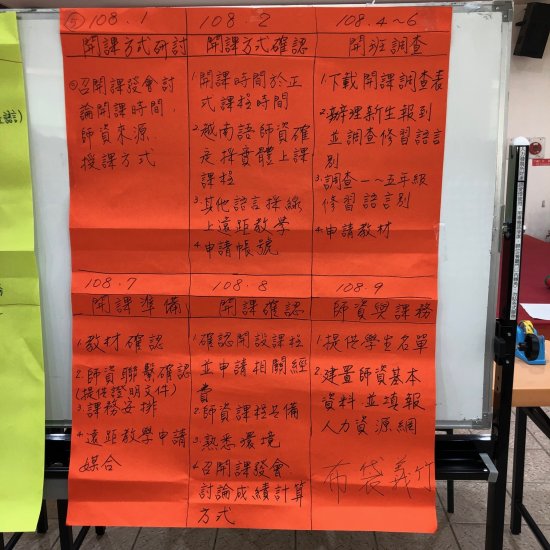 ⑤ 108.1
開課方式研討
①召開課發會討
論開課時間,
師資來源.
授課方式
108.2
開課方式確認
1.開課時間於正
式課程時間
2.越南語師資確
定採實體上課
課程
3.其他語言採線
上遠距教學
4.申請帳號
108.4~6
開班調查
1.下載開課調查表
2.辦理新生報到
並調查修習語言
別
3.調查一~五年級
修習語言別
4.申請教材
108.7
開課準備
1.教材確認
2.師資聯繫確認
(提供證明文件)
3.課務安排
4.遠距教學申請
媒合
108.8
開課確認
1.確認開設課程
並申請相關經
費
2.師資課程齊備
3.熟悉環境
4.召開課發會
討論成績計算
方式
108.9
師資與課務
1.提供學生名單
2.建置師資基本
資料並填報
人力資源網
布袋義竹